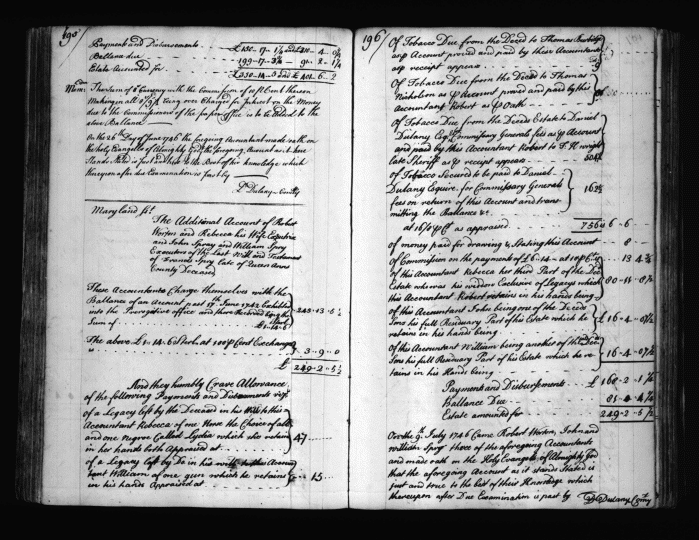 190
Payment and Disbursements £150-17-1½ and £310-4-0½
Ballance due 199-17-3¼ 91-2-1¼
Estate Accounted for £350-14-5 and £401-6-2
The sum of Currency with the Commission of 10 p Cent thereon
Making in all of being over Charged for Interest on the Money
due to the Commissioner of the paper office is to be added to the
above Ballance
On the 26th Day of June 1746 the foregoing Accountant made oath on
the holy Evangelis of Almighty God, the foregoing Account as it here
Stands Stated is just and true to the Best of her knowledge which
thereupon after due Examination is past by
D Dulany Com
Maryland ss.
The Additional Account of Robert
Worton and Rebecca his Wife Executrix
and John Spry and William Spry
Executors of the Last Will and Testament
of Francis Spry late of Queen Anns
County Deceased
These Accountants Charge themselves with the
Ballance of an Account past 17th June 1742 Exhibited
into the Prerogative office and there Recorded
Sum of £1-14-6 245-13-5½
The above £1-14-6 Sterl. at 100 p Cent Exchange
is 3-9-0
£ 249-2-5½
And they humbly Crave Allowance
of the following Payments and Disbursements viz
of a Legacy left by the Deceased in his Will to this
Accountant Rebecca of one Horse the Choice of all
and one Negroe Called Lydia which she retains
in her hands both Appraised at 47
of a Legacy left by Do in his will to this Accoun
tant William of one gun which he retains
in his hands Appraised at 15
196
Of Tobacco Due from the Deced to Thomas
as p Account proved and paid by these Accountants
as p receipt appears 9
Of Tobacco Due from the Deced to Thomas
Nicholson as p Account proved and paid by this
Accountant Robert as p oath
Of Tobacco Due from the Deceds Estate to Daniel
Dulany Esq Commissary Generals fees as p Account
and paid by this Accountant Robert to T. H. Wright
late Sheriff as p receipt appears 504
of Tobacco Secured to be paid to Daniel
Dulany Esquire for Commissary Generals
fees on return of this Account and trans
mitting the Ballance &c. 162
at 16/8 p C as appraised 756 6-6-
of money paid for drawing & Stating this Account 8-
of Commission on the payments of £6-14- at 10 p C 13-4¾
of this Accountant Rebecca her third Part of the Deceds
Estate who was his widdow Exclusive of Legacys which
this Accountant Robert retains in his hands being 80-11-8½
of this Accountant John being one of the Deceds
Sons his full Residuary Part of his Estate which he
retains in his hands being 16-4-0½
of this Accountant William being another of the Deceds
Sons his full Residuary Part of his Estate which he re
tains in his Hands being 16-4-0½
Payments and Disbursements £168-2-1¼
Ballance Due 81-0-4¼
Estate amounted for 249-2-5½
On the 9th July 1746 Came Robert Worton, John and
William Spry three of the aforegoing Accountants
and made oath on the Holy Evangels of Almighty God
that the aforegoing Account as it stands Stated is
just and true to the best of their knowledge which
thereupon after Due Examination is past by D Dulany Com